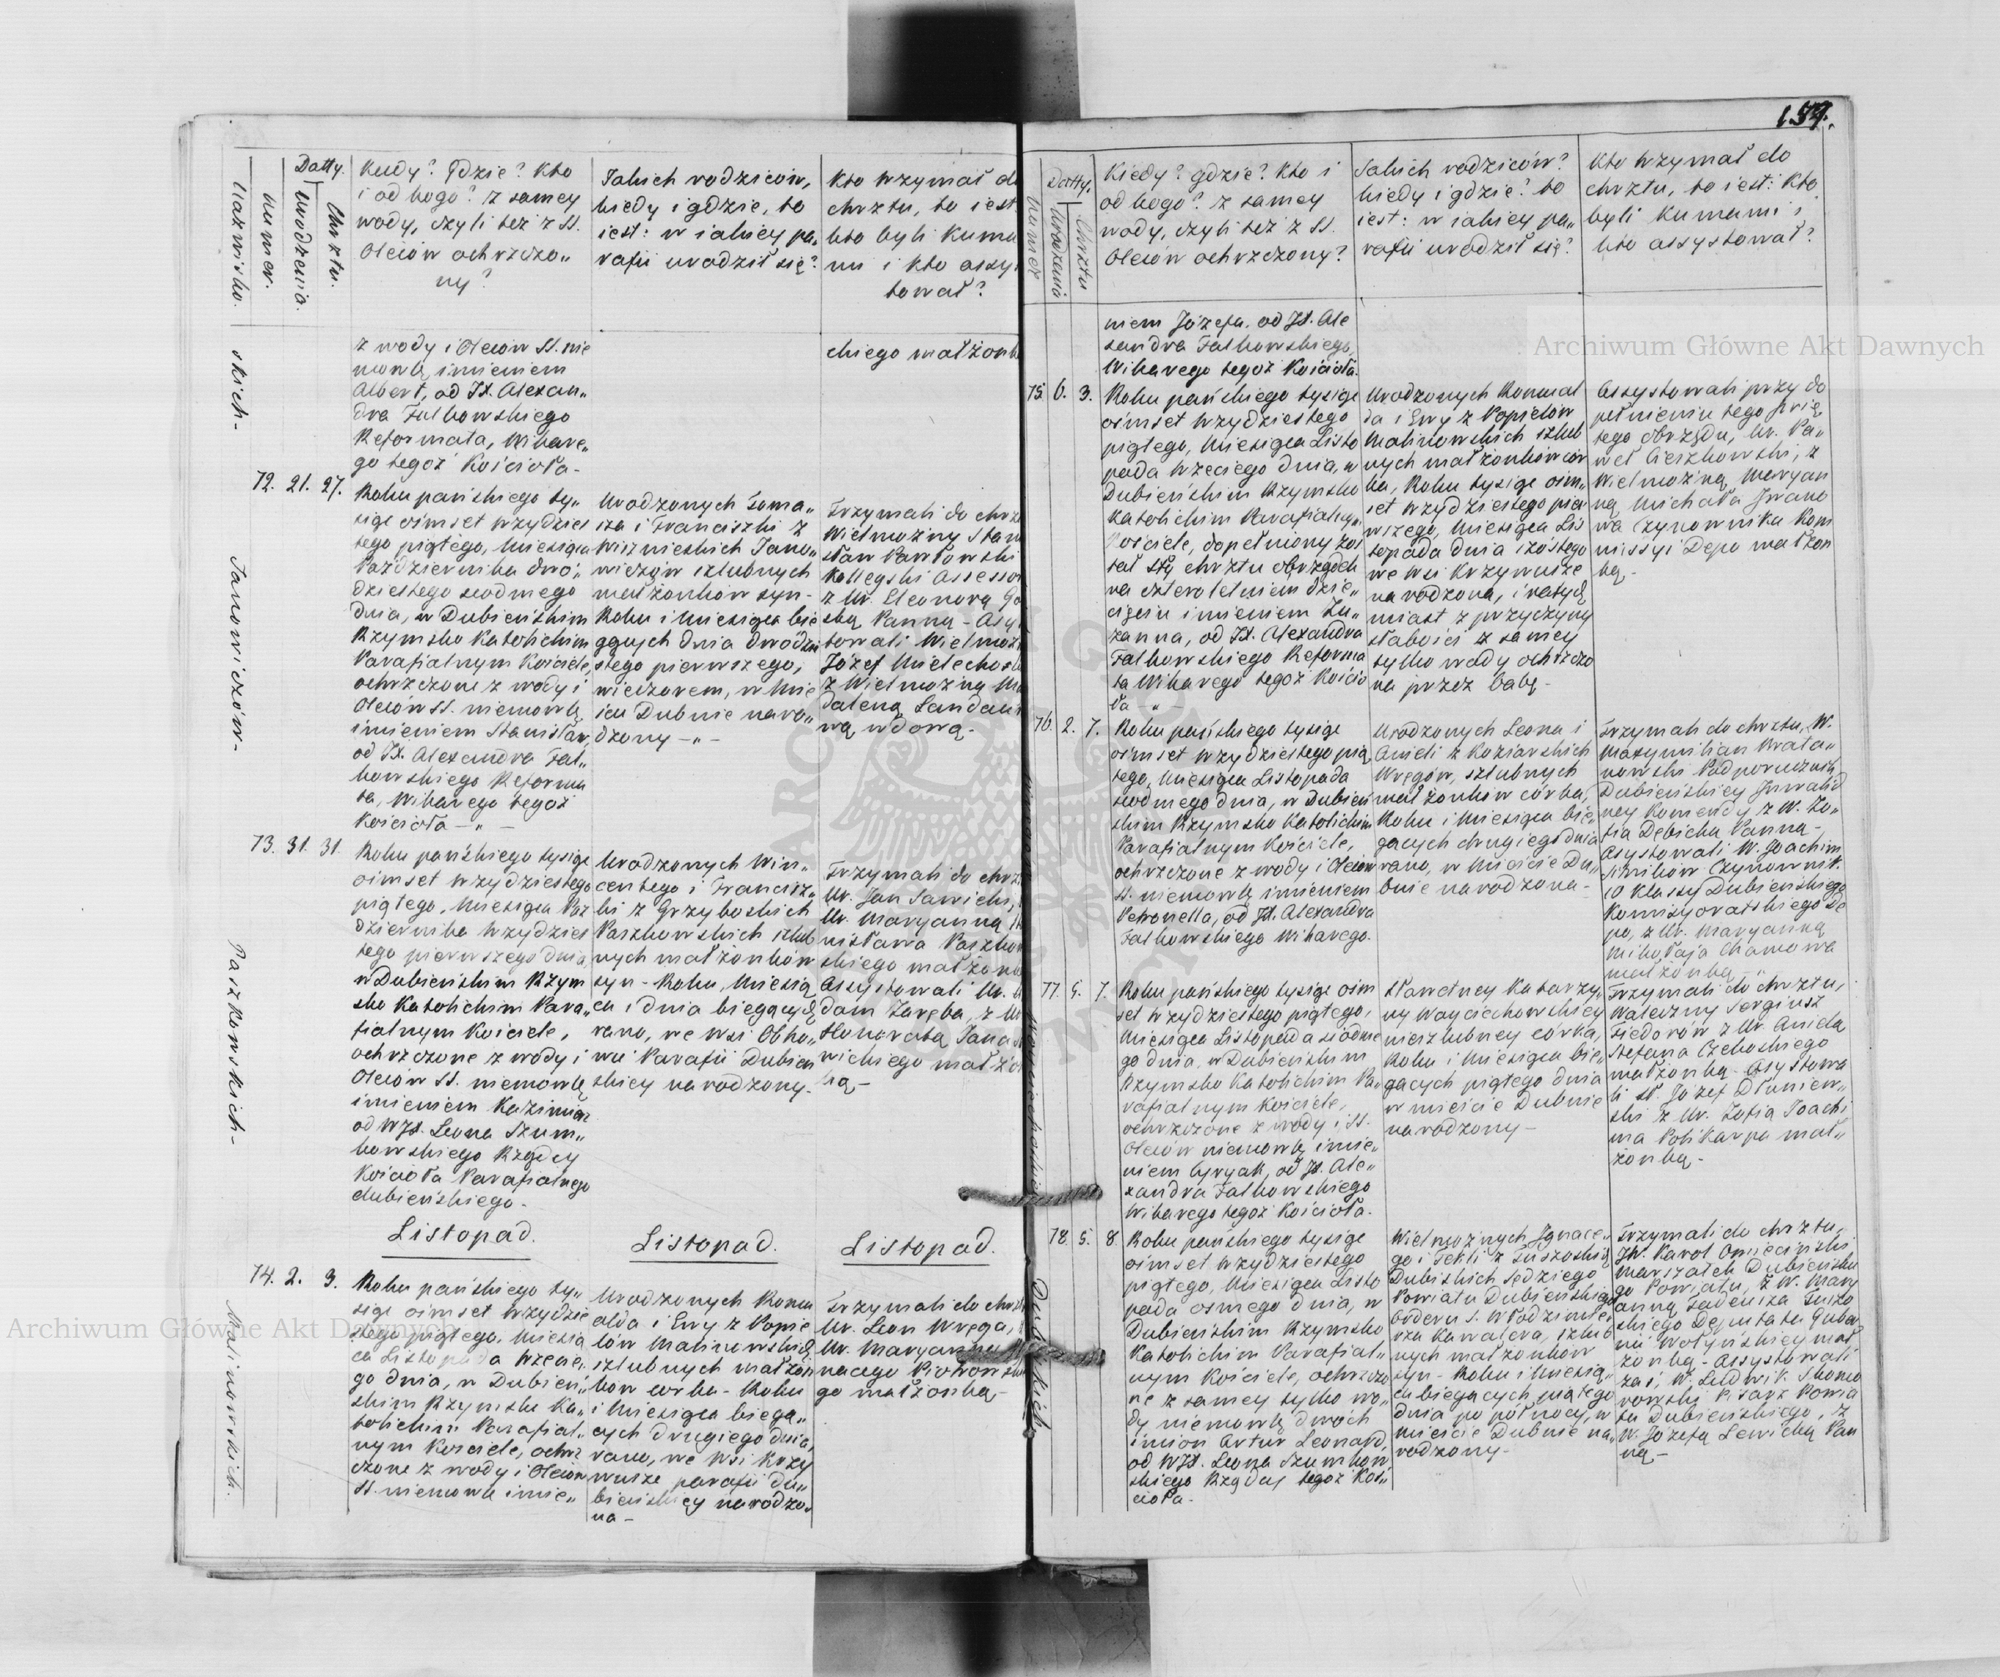 159.
Nazwisko.
numer.
Datty.
Urodzenia.
Chrztu.
Kiedy? Gdzie? Kto
i od kogo? z samey
wody, czyli też z SS.
Oleiów ochrzczo„
ny?
Jakich rodziców,
kiedy i gdzie, to
iest: w iakiey pa„
rafii urodził się?
Kto trzymał do
chrztu, to iest
kto byli Kuma
mi i kto assy
tował?
skich-
z wody i Oleiów SS. nie
mowlę imieniem
Albert, od JX. Alexan„
dra Falkowskiego
Reformata, Wikare„
go tegoż Kościoła-
chiego małżonk
72. 21. 27.
Janowiczów-
Roku pańskiego ty„
siąc ośmset trzydzies
tego piątego, Miesiąca
Października dwó„
dziestego siodmego
dnia, w Dubieńskim
Rzymsko Katolickim
Parafialnym Kościele
ochrzczone z wody i
Oleiów SS. niemowlę
imieniem Stanisław,
od JX. Alexandra Fal„
kowskiego Reforma
ta, Wikarego tegoż
Kościoła — „ —
Urodzonych Toma„
sza i Franciszki z
Wiszniewskich Jano„
wiczów szlubnych
małżonkow syn-
Roku i Miesiąca bie
gących dnia dwódzie
stego pierwszego,
wieczorem, w Mie
ście Dubnie naro„
dzony — „ —
Trzymali do chrz
Wielmożny Stani
sław Pawłowski
Kollegski Assessor
z Ur. Eleonorą Go
ską Panną - Asys
towali Wielmoż
Józef Mielechows
z Wielmożną Ma
daleną Landau
wą wdową.
73. 31. 31.
Paszkowskich-
Roku pańskiego tysiąc
ośmset trzydziestego
piątego, Miesiąca Paź
dziernika trzydzies
tego pierwszego dnia
w Dubieńskim Rzym
sko Katolickim Para„
fialnym Kościele,
ochrzczone z wody i
Oleiów SS. niemowlę
imieniem Kazimirz
od WJX. Leona Szum„
kowskiego Rządcy
Kościoła Parafialnego
dubieńskiego-
Urodzonych Win„
centego i Francisz„
ki z Grzyboskich
Paszkowskich szlub
nych małżonków
syn - Roku, Miesią„
ca i dnia biegących
rano, we wsi Obho„
wie Parafii Dubien
skiey narodzony.
Trzymali do chrz
Ur. Jan Sawicki,
Ur. Maryanną
nisława Paszkow
skiego małżonk
Assystowali Ur.
dam Zaręba, z Ur
Honoratą Jana
wickiego małżo
ką-
Listopad.
Listopad.
Listopad.
74. 2. 3.
Malinowskich.
Roku pańskiego ty„
siąc ośmset trzydzie
stego piątego, Miesią
ca Listopada trzecie„
go dnia, w Dubień„
skim Rzymsko Ka„
tolickim Parafial„
nym Kościele, ochrz
czone z wody i Oleiów
SS. niemowle imie„
Urodzonych Romu
alda i Ewy z Popie
lów Malinowskich
szlubnych małżon
ków corka- Roku
i Miesiąca biegą„
cych drugiego dnia,
rano, we Wsi Krzy
wusze parafii du„
bieńskiey narodzo„
na-
Trzymali do chrz
Ur. Leon Wręga,
Ur. Maryanną
nacego Piotrows
go małżonką-
numer
Datty.
Urodzenia
Chrztu
Kiedy? gdzie? Kto i
od kogo? z samey
wody, czyli też z SS.
Oleiów ochrzczony?
Jakich rodziców?
kiedy i gdzie? to
iest: w iakiey pa„
rafii urodził się?
Kto trzymał do
chrztu, to iest: Kto
byli Kumami i
kto assystował?
niem Józefa, od JX. Ale
xandra Falkowskiego,
Wikarego tegoż Kościoła.
75. 6. 3.
Roku pańskiego tysiąc
ośmset trzydziestego
piątego, Miesiąca Listo
pada trzeciego dnia, w
Dubieńskim Rzymsko
Katolickim Parafialny„
Kościele, dopełniony zos
tał Sty chrztu obrządek
na czteroletniem dzie„
cięciu imieniem Zu„
zanna, od JX. Alexandra
Falkowskiego Reforma
ta Wikarego tegoż Kościo
ła „
Urodzonych Romual
da i Ewy z Popielów
Malinowskich szlub
nych małżonków cór
ka, Roku tysiąc ośm„
set trzydziestego pier
wszego, Miesiąca Lis
topada dnia szóstego
we wsi Krzywusze
narodzona, i natych
miast z przyczyny
słabości z samey
tylko wody ochrzczo
na przez babę-
Assystowali przy do
pełnieniu tego świę
tego obrzędu, Ur. Pa„
weł Cieszkowski, z
Wielmożną Maryan
ną Michała Iwano
wa Czynownika Kom
missyi Depo małżon
ką-
76. 2. 7.
Roku pańskiego tysiąc
ośmset trzydziestego pią
tego, Miesiąca Listopada
siodmego dnia, w Dubień
skim Rzymsko Katolickim
Parafialnym Kościele,
ochrzczone z wody i Oleiów
SS. niemowlę imieniem
Petronella, od JX. Alexandra
Falkowskiego Wikarego.
Urodzonych Leona i
Anieli z Koziarskich
Wręgów, szlubnych
małżonków córka,
Roku i Miesiąca bie„
gących drugiego dnia
rano, w Mieście Du„
bnie narodzona-
Trzymali do chrztu, W.
Maxymilian Krata„
nowski Podporucznik
Dubieńskiey Inwalid
ney Komendy z W. Zo„
fia Dębicka Panną-
Asystowali W. Joachim
Czynownik
10 Klassy Dubieńskiego
Komisyoratskiego De
po, z Ur. Maryanną
Mikołaja Chamowa
małżonką „
77. 5. 7.
Roku pańskiego tysiąc ośm
set trzydziestego piątego,
Miesiąca Listopada siódme
go dnia, w Dubieńskim
Rzymsko Katolickim Pa„
rafialnym Kościele,
ochrzczone z wody i SS.
Oleiów niemowlę imie„
niem Cyryak, od JX. Ale„
xandra Falkowskiego
Wikarego tegoż Kościoła.
Sławetney Katarzy„
ny Woyciechowskiey
nieszlubney córka,
Roku i Miesiąca bie„
gących piątego dnia
w mieście Dubnie
narodzony-
Trzymali do chrztu,
Waleczny Sergiusz
Fiedorów z Ur. Anielą
Stefana Czehoskiego
małżonką- Asystowa
li Sł. Józef Dłuniew„
ski z Ur. Zofią Joachi
ma Polikarpa mał„
żonką-
78. 5. 8.
Dubiskich
Roku pańskiego tysiąc
ośmset trzydziestego
piątego, Miesiąca Listo
pada osmego dnia, w
Dubieńskim Rzymsko
Katolickim Parafial„
nym Kościele, ochrzczo
ne z samey tylko wo„
dy niemowlę dwóch
imion Artur Leonard,
od WJX. Leona Szumkow
skiego Rządcy tegoż Koś„
cioła-
Wielmożnych Ignace„
go i Tekli z Tuszoskich
Dubiskich Sędziego
Powiatu Dubieńskiego
orderu S. Włodzimie
rza Kawalera, szlub
nych małżonków
syn - Roku i Miesią„
ca biegących piątego
dnia po północy, w
mieście Dubnie na„
rodzony-
Trzymali do chrztu,
JW. Karol Omieciński
Marszałek Dubieńskie
go Powiatu, z W. Mary
anną Tadeusza Tuszo
skiego Deputata Guber
nii Wołyńskiey mał
żonką- Assystowali
zaś, W. Ludwik
rowski Pisarz Powia
tu Dubieńskiego, z
W. Józefą Lewicką Pan
ną-
Archiwum Główne Akt Dawnych
Archiwum Główne Akt Dawnych